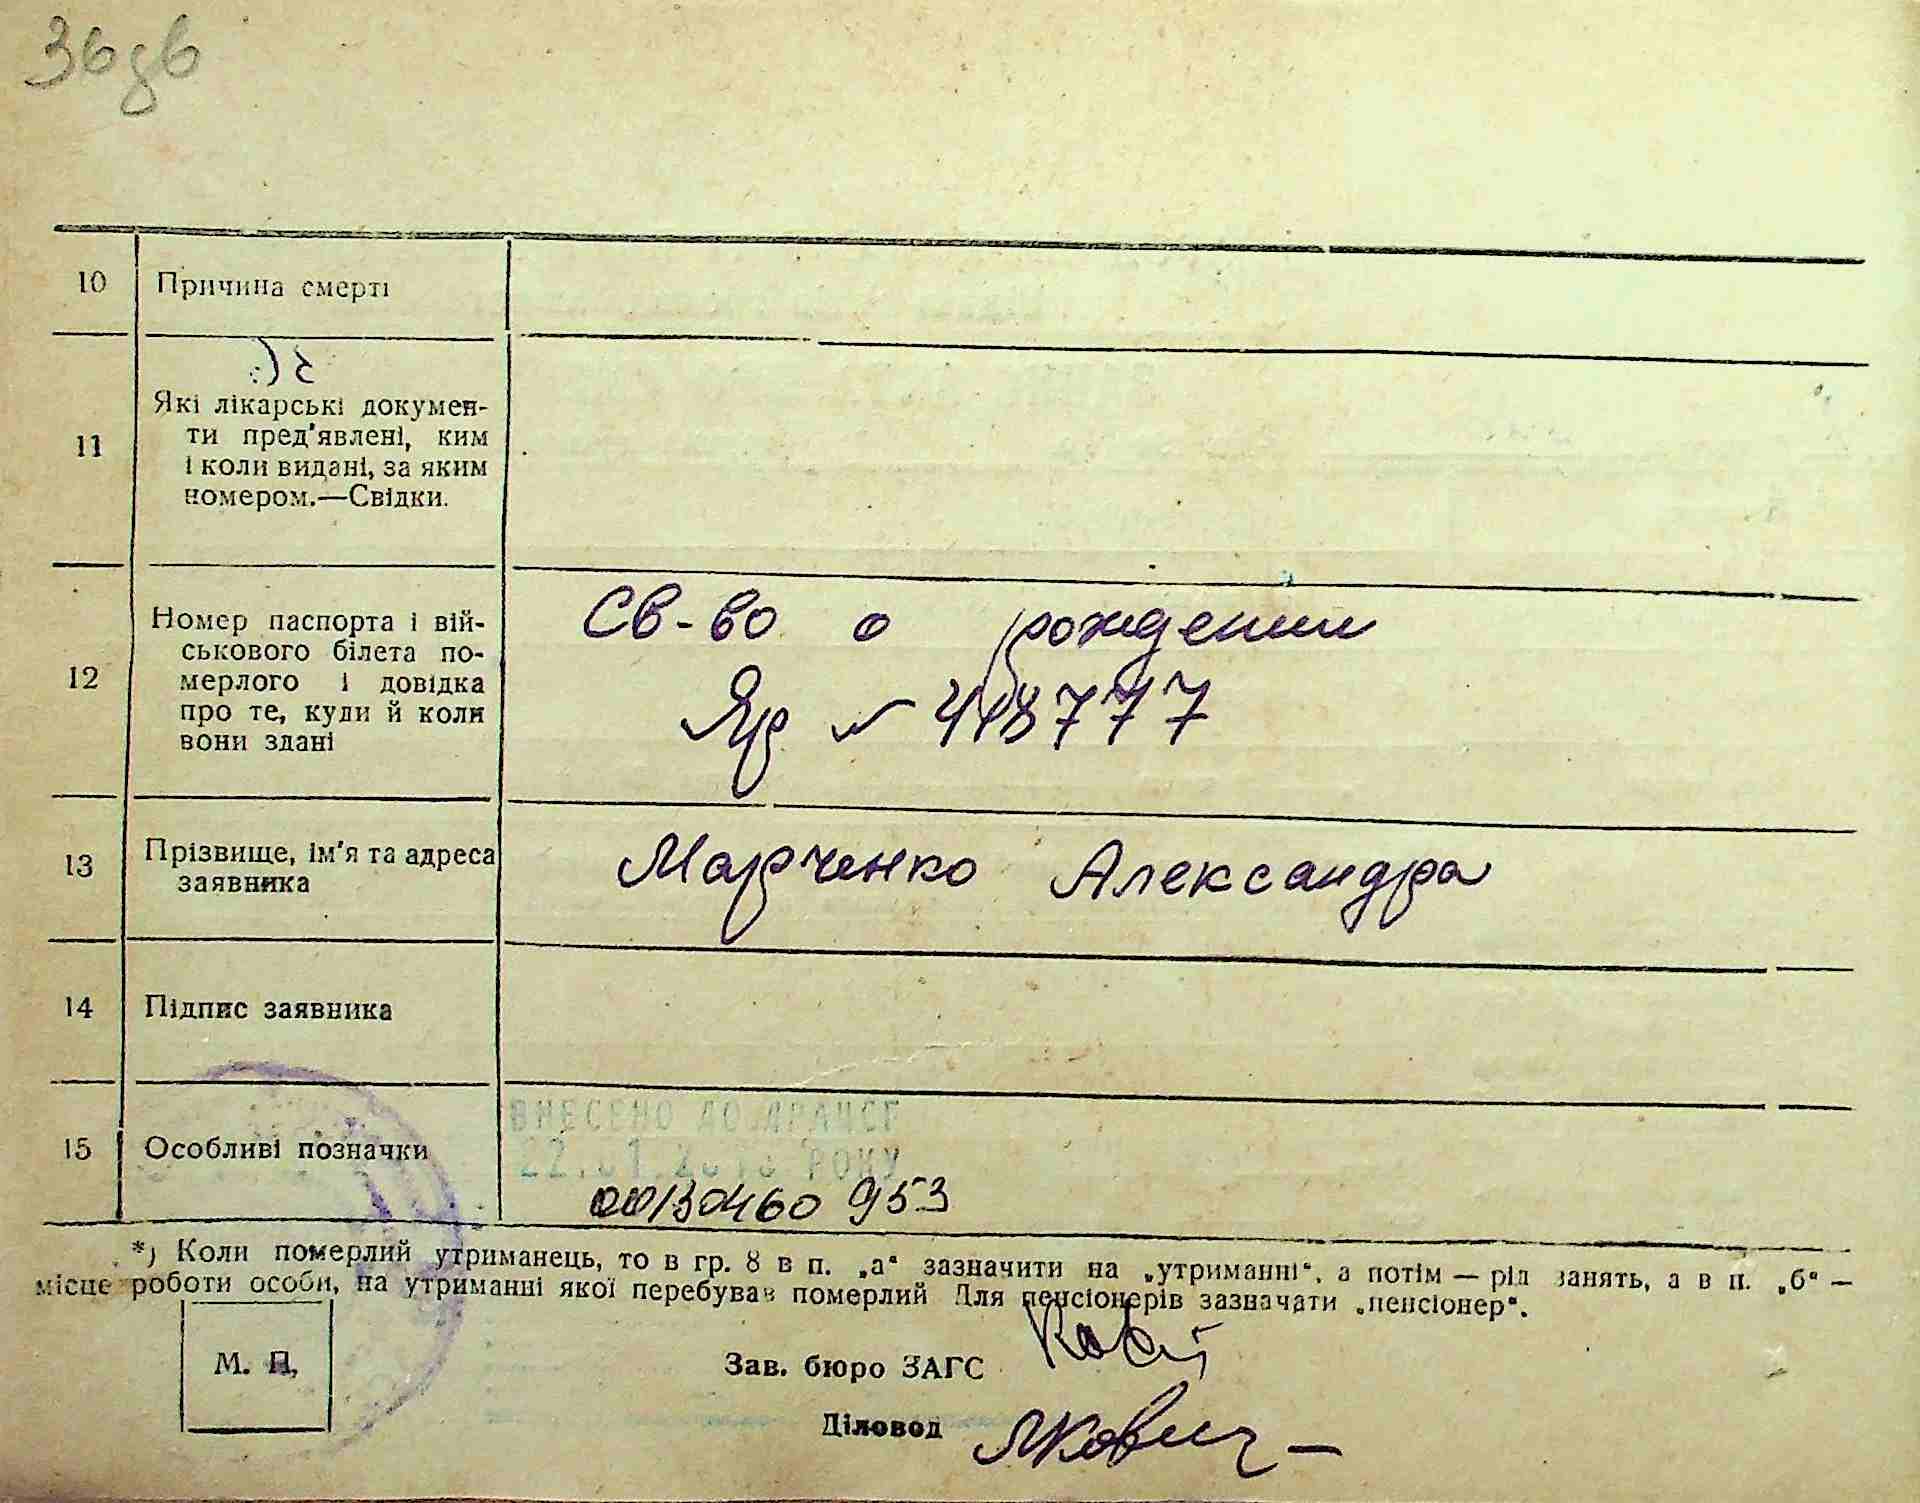 36
10 Причина смерті
11 Які лікарські докумен-
ти пред'явлені, ким
і коли видані, за яким
номером.—Свідки.
12 Номер паспорта і вій-
ськового білета по-
мерлого і довідка
про те, куди й коли
вони здані
Св-во о рождении
Яр № 448777
13 Прізвище, ім'я та адреса
заявника
Марченко Александра
14 Підпис заявника
15 Особливі позначки
ВНЕСЕНО ДО ДРАЦСГ
РОКУ
00130460 953
*) Коли померлий утриманець, то в гр. 8 в п. „а“ зазначити на „утриманні“, а потім — рід занять, а в п. „б“ —
місце роботи особи, на утриманні якої перебував померлий Для пенсіонерів зазначати „пенсіонер“.
М. П.
Зав. бюро ЗАГС
Діловод